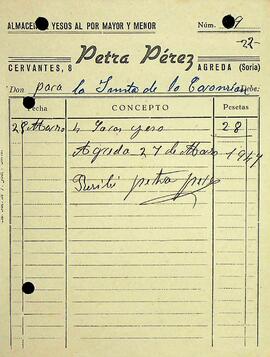 ALMACEN DE YESOS AL POR MAYOR Y MENOR Núm. 9
-22-
Petra Pérez
CERVANTES, 8 AGREDA (Soria)
Don para la Junta de la Debe:
Fecha CONCEPTO Pesetas
28 Marzo 4 Sacos yeso 28
Agreda 27 de Marzo 1947
Recibí petra perez